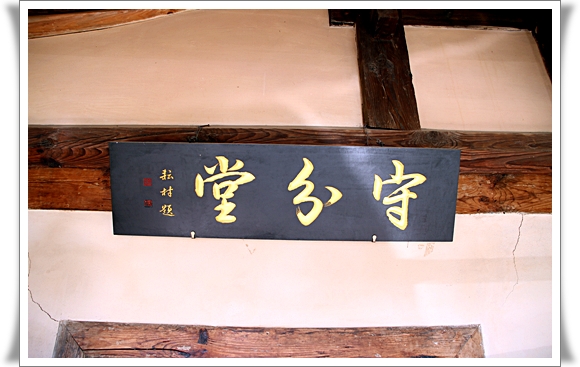 守分堂
耘村題